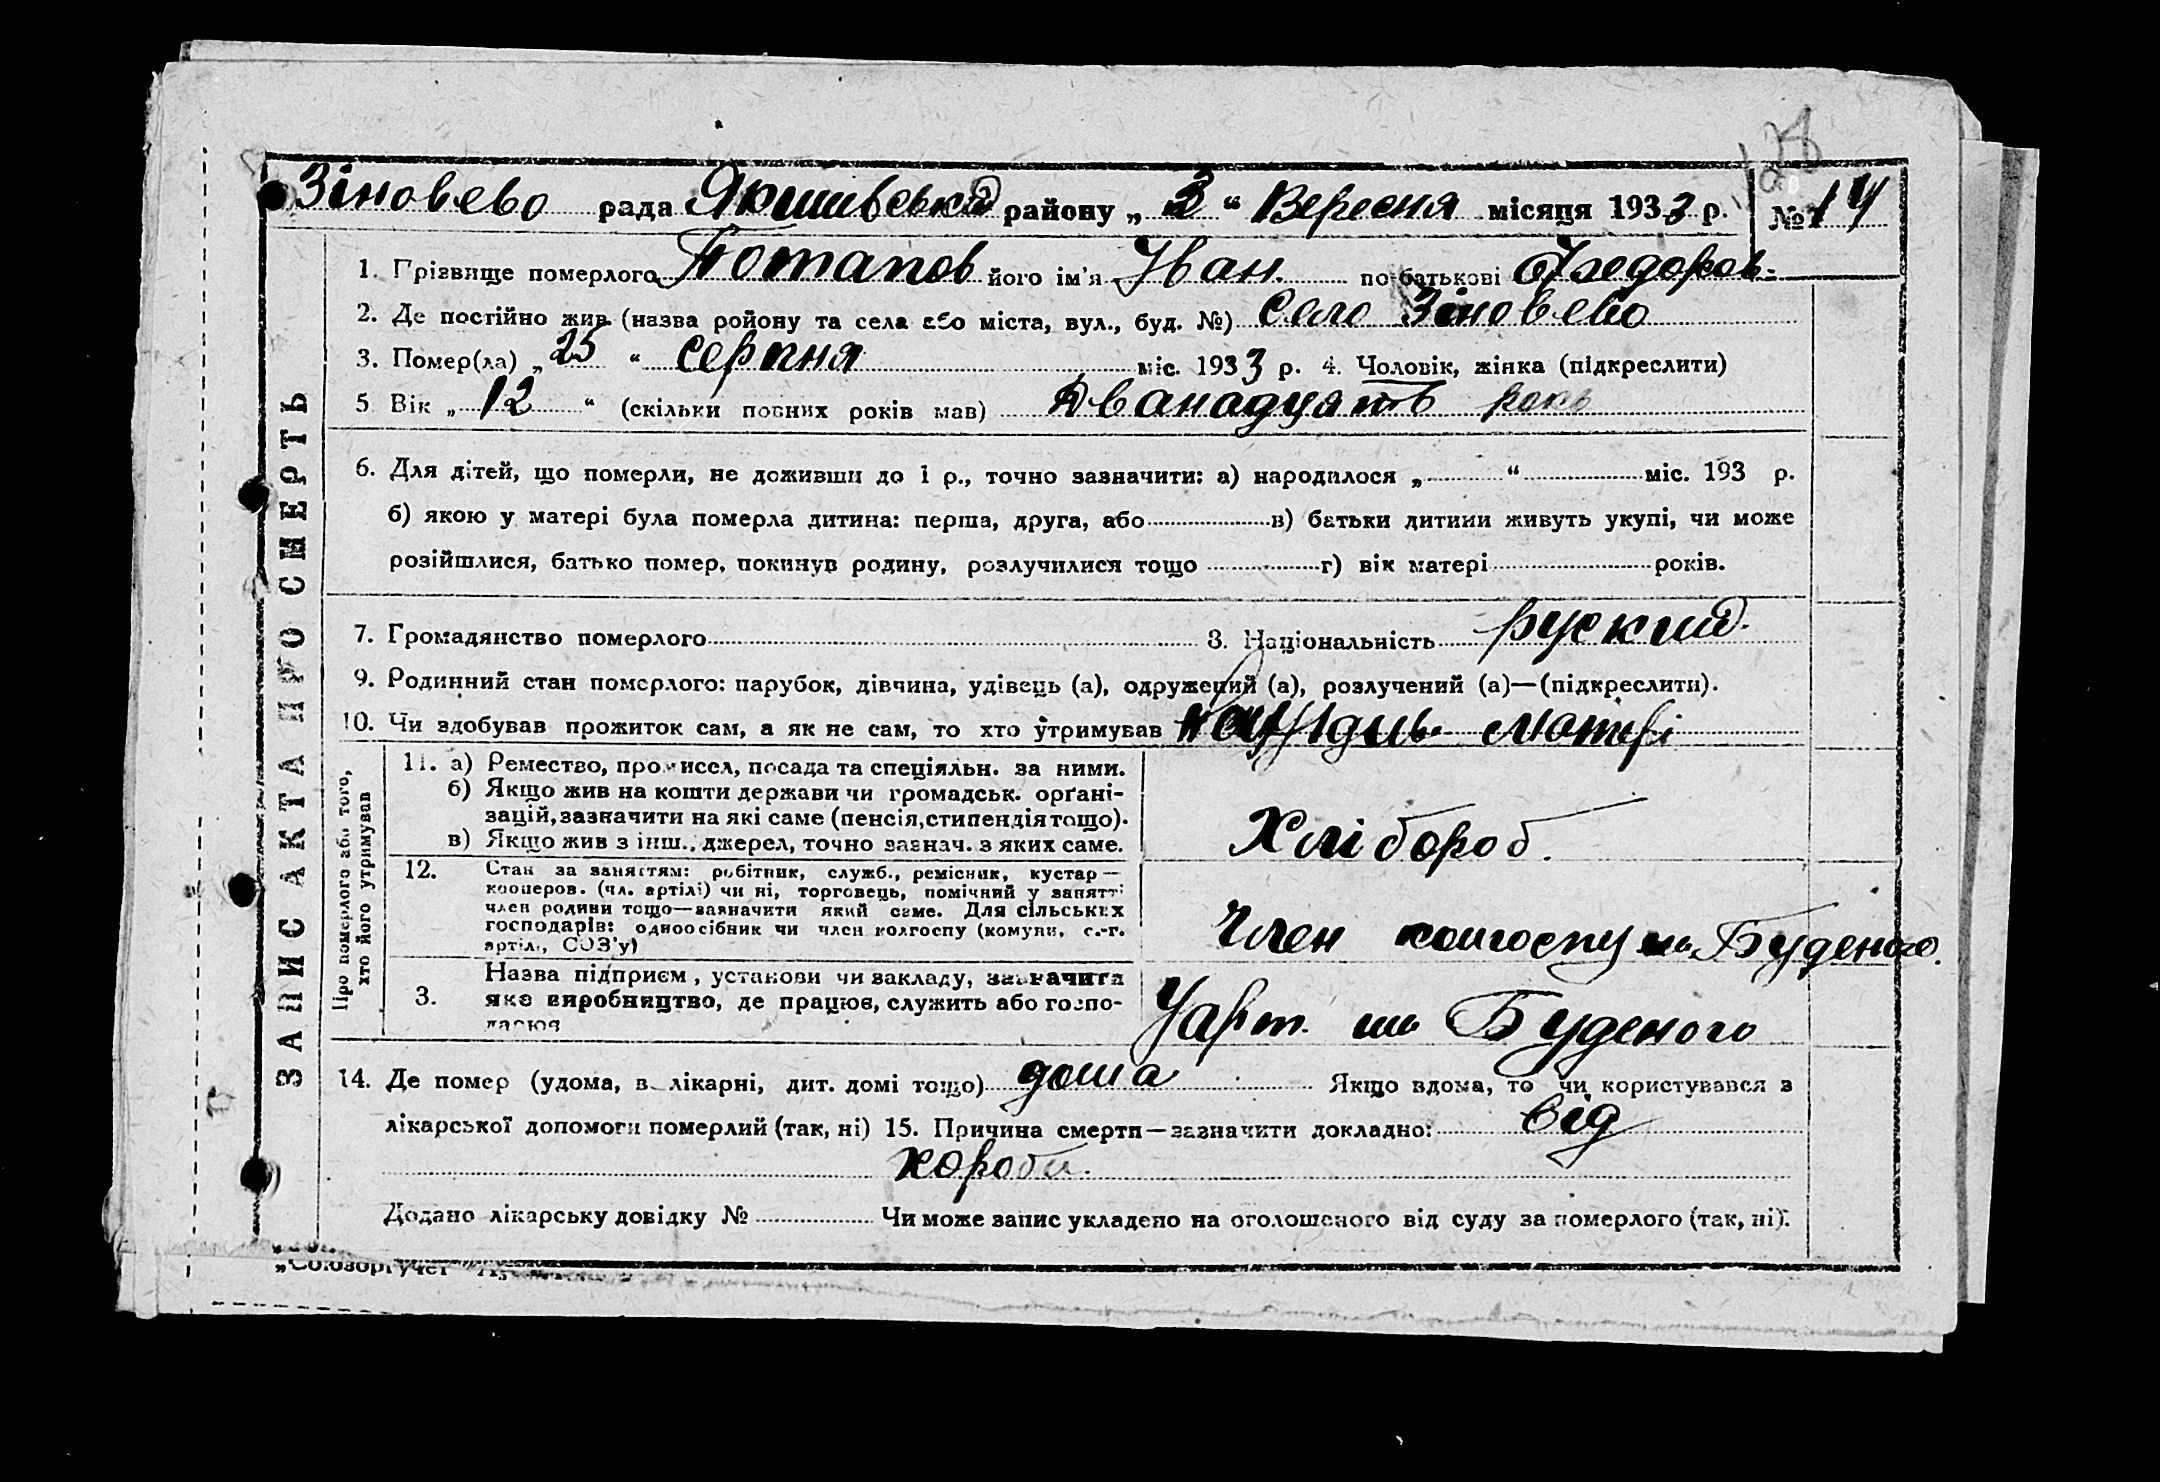 128
Зіновєво рада Якимівської району „ 3 “ Вересня місяця 1933 р. № 14
1. Прізвище померлого Потапов його ім'я Іван. по-батькові Федоров-
2. Де постійно жив (назва ройону та села або міста, вул., буд. №) село Зіновєво
3. Помер(ла) „ 25 “ серпня міс. 1933 р. 4. Чоловік, жінка (підкреслити)
5 Вік „ 12 “ (скільки повних років мав) Дванадцять
6. Для дітей, що померли, не доживши до 1 р., точно зазначити: а) народилося „ “ міс. 193 р.
б) якою у матері була померла дитина: перша, друга, або в) батьки дитини живуть укупі, чи може
розійшлися, батько помер, покинув родину, розлучилися тощо г) вік матері років.
7. Громадянство померлого 8. Національність руский.
9. Родинний стан померлого: парубок, дівчина, удівець (а), одружений (а), розлучений (а)—(підкреслити).
10. Чи здобував прожиток сам, а як не сам, то хто утримував матері
ЗАПИС АКТА ПРО СМЕРТЬ
Про померлого або того,
хто його утримував
11. а) Ремество, промисел, посада та спеціяльн. за ними.
б) Якщо жив на кошти держави чи громадськ. орґані-
зацій, зазначити на які саме (пенсія, стипендія тощо).
в) Якщо жив з інш. джерел, точно зазнач. з яких саме.
Хлібороб.
12. Стан за заняттям: робітник, служб., ремісник, кустар—
кооперов. (чл. артілі) чи ні, торговець, помічний у занятті
член родини тощо—зазначити який саме. Для сільських
господарів: одноосібник чи член колгоспу (комуни, с.-г.
артіл., СОЗ'у)
Член колгоспу Буденого.
3. Назва підприєм, установи чи закладу, зазначити
яке виробництво, де працює, служить або госпо-
дарює
Уарт. Буденого
14. Де помер (удома, в лікарні, дит. домі тощо) дома Якщо вдома, то чи користувався з
лікарської допомоги померлий (так, ні) 15. Причина смерти—зазначити докладно: від
хороби.
Додано лікарську довідку № Чи може запис укладено на оголошеного від суду за померлого (так, ні).
„Союзоргучет